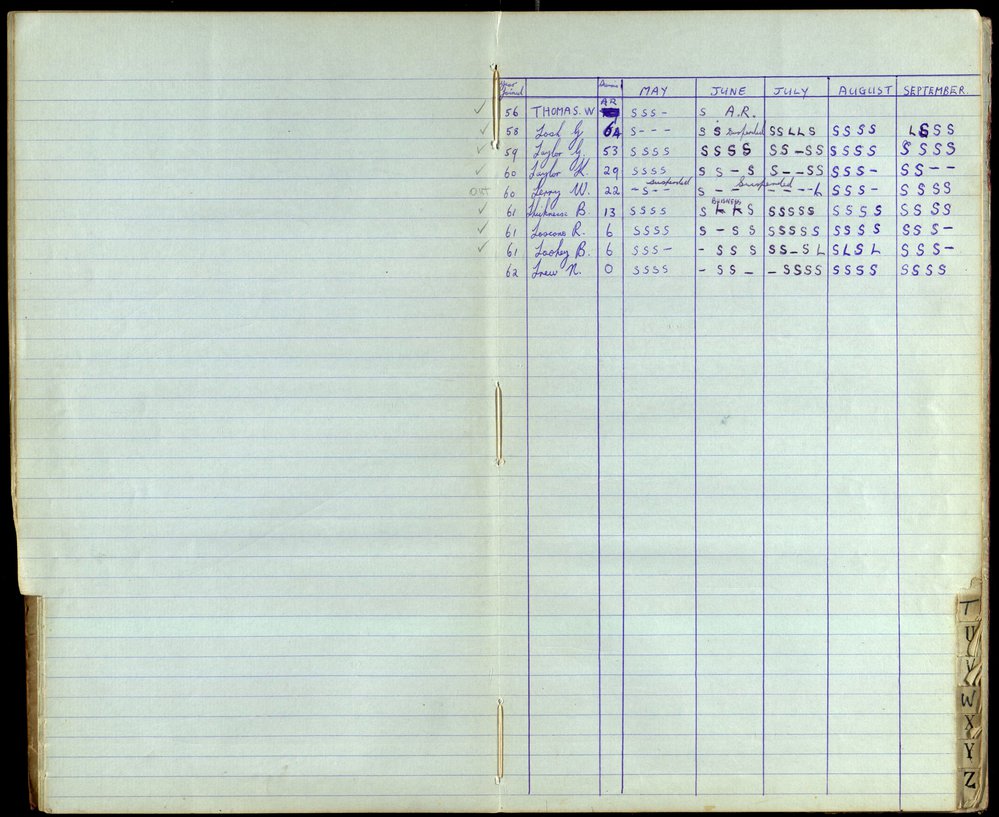 Year Joined MAY JUNE JULY AUGUST SEPTEMBER.
✓ 56 THOMAS. W AR S S S - S A.R.
✓ 58 G 64 S - - - S S Suspended S S L L S S S S S L S S S
✓ 59 Taylor G. 53 S S S S S S S S S S - S S S S S S S S S S
✓ 60 Taylor K. 29 S S S S S S - S S - - S S S S S - S S - -
OUT 60 W. 22 - S - - Suspended S - - Suspended - - - - L S S S - S S S S
✓ 61 B. 13 S S S S S BUSINESS L L S S S S S S S S S S S S S S
✓ 61 R. 6 S S S S S - S S S S S S S S S S S S S S -
✓ 61 B. 6 S S S - - S S S S S - S L S L S L S S S -
62 N. 0 S S S S - S S - - S S S S S S S S S S S S
T
U
V
W
X
Y
Z